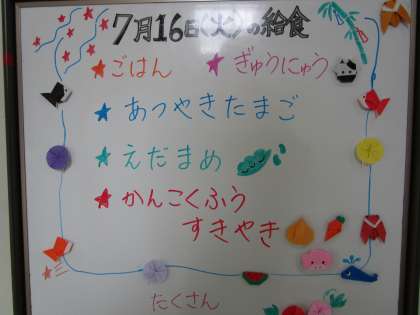 7月16日(火)の給食
★ごはん ★ぎゅうにゅう
★あつやきたまご
★えだまめ
★かんこくふう
すきやき
たくさん